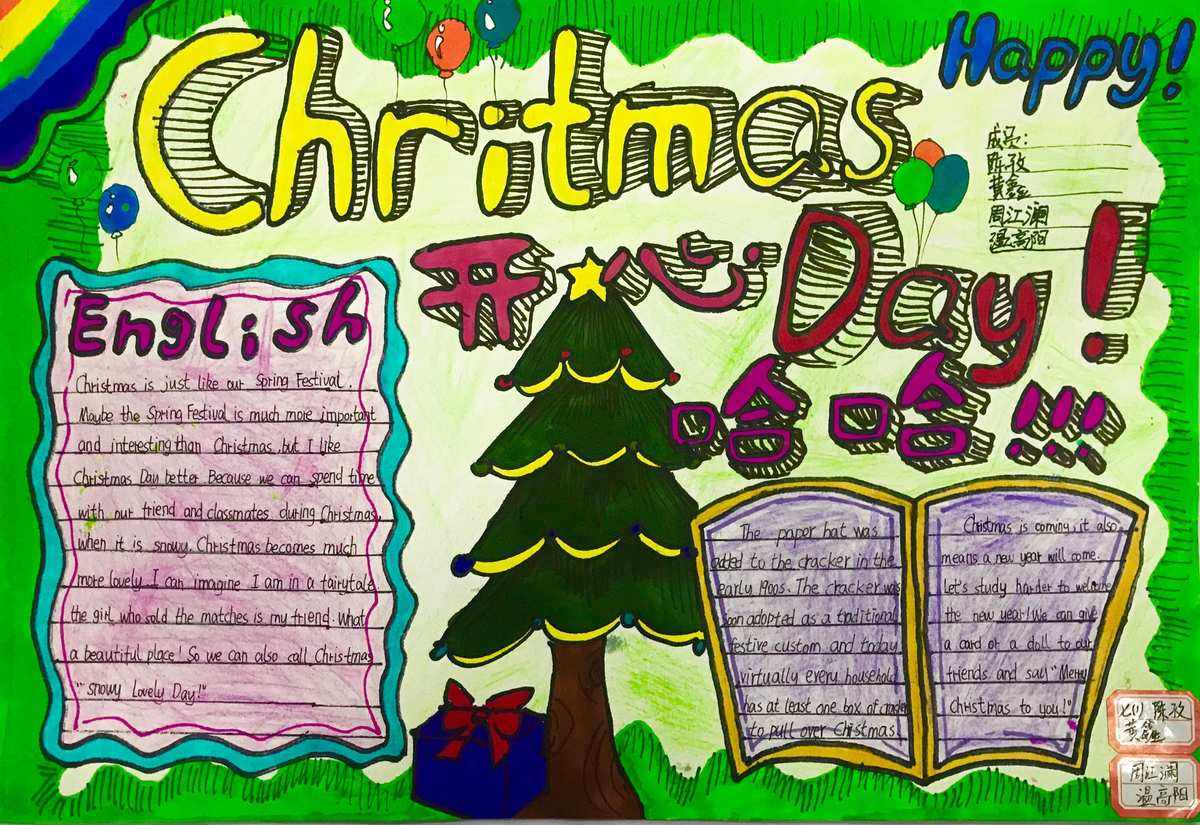 Chritmas
Happy!
成员:
陈孜
黄鑫
周江澜
温高阳
开心Day!
哈哈!!!
English
Christmas is just like our Spring Festival.
Maybe the Spring Festival is much more important
and interesting than Christmas. but I like
Christmas Day better. Because we can spend time
with our friend and classmates during Christmas
when it is snowy. Christmas becomes much
more lovely. I can imagine I am in a fairytale.
the girl who sold the matches is my friend. What
a beautiful place! So we can also call Christmas
"snowy Lovely Day!"
The paper hat was
added to the cracker in the
early 1900s. The cracker was
soon adopted as a traditional
festive custom and today
virtually every household
has at least one box of
to pull over Christmas.
Christmas is coming, it also
means a new year will come.
Let's study harder to welcome
the new year! We can give
a card or a doll to our
friends and say "Merry
Christmas to you!"
陈孜
黄鑫
周江澜
温高阳